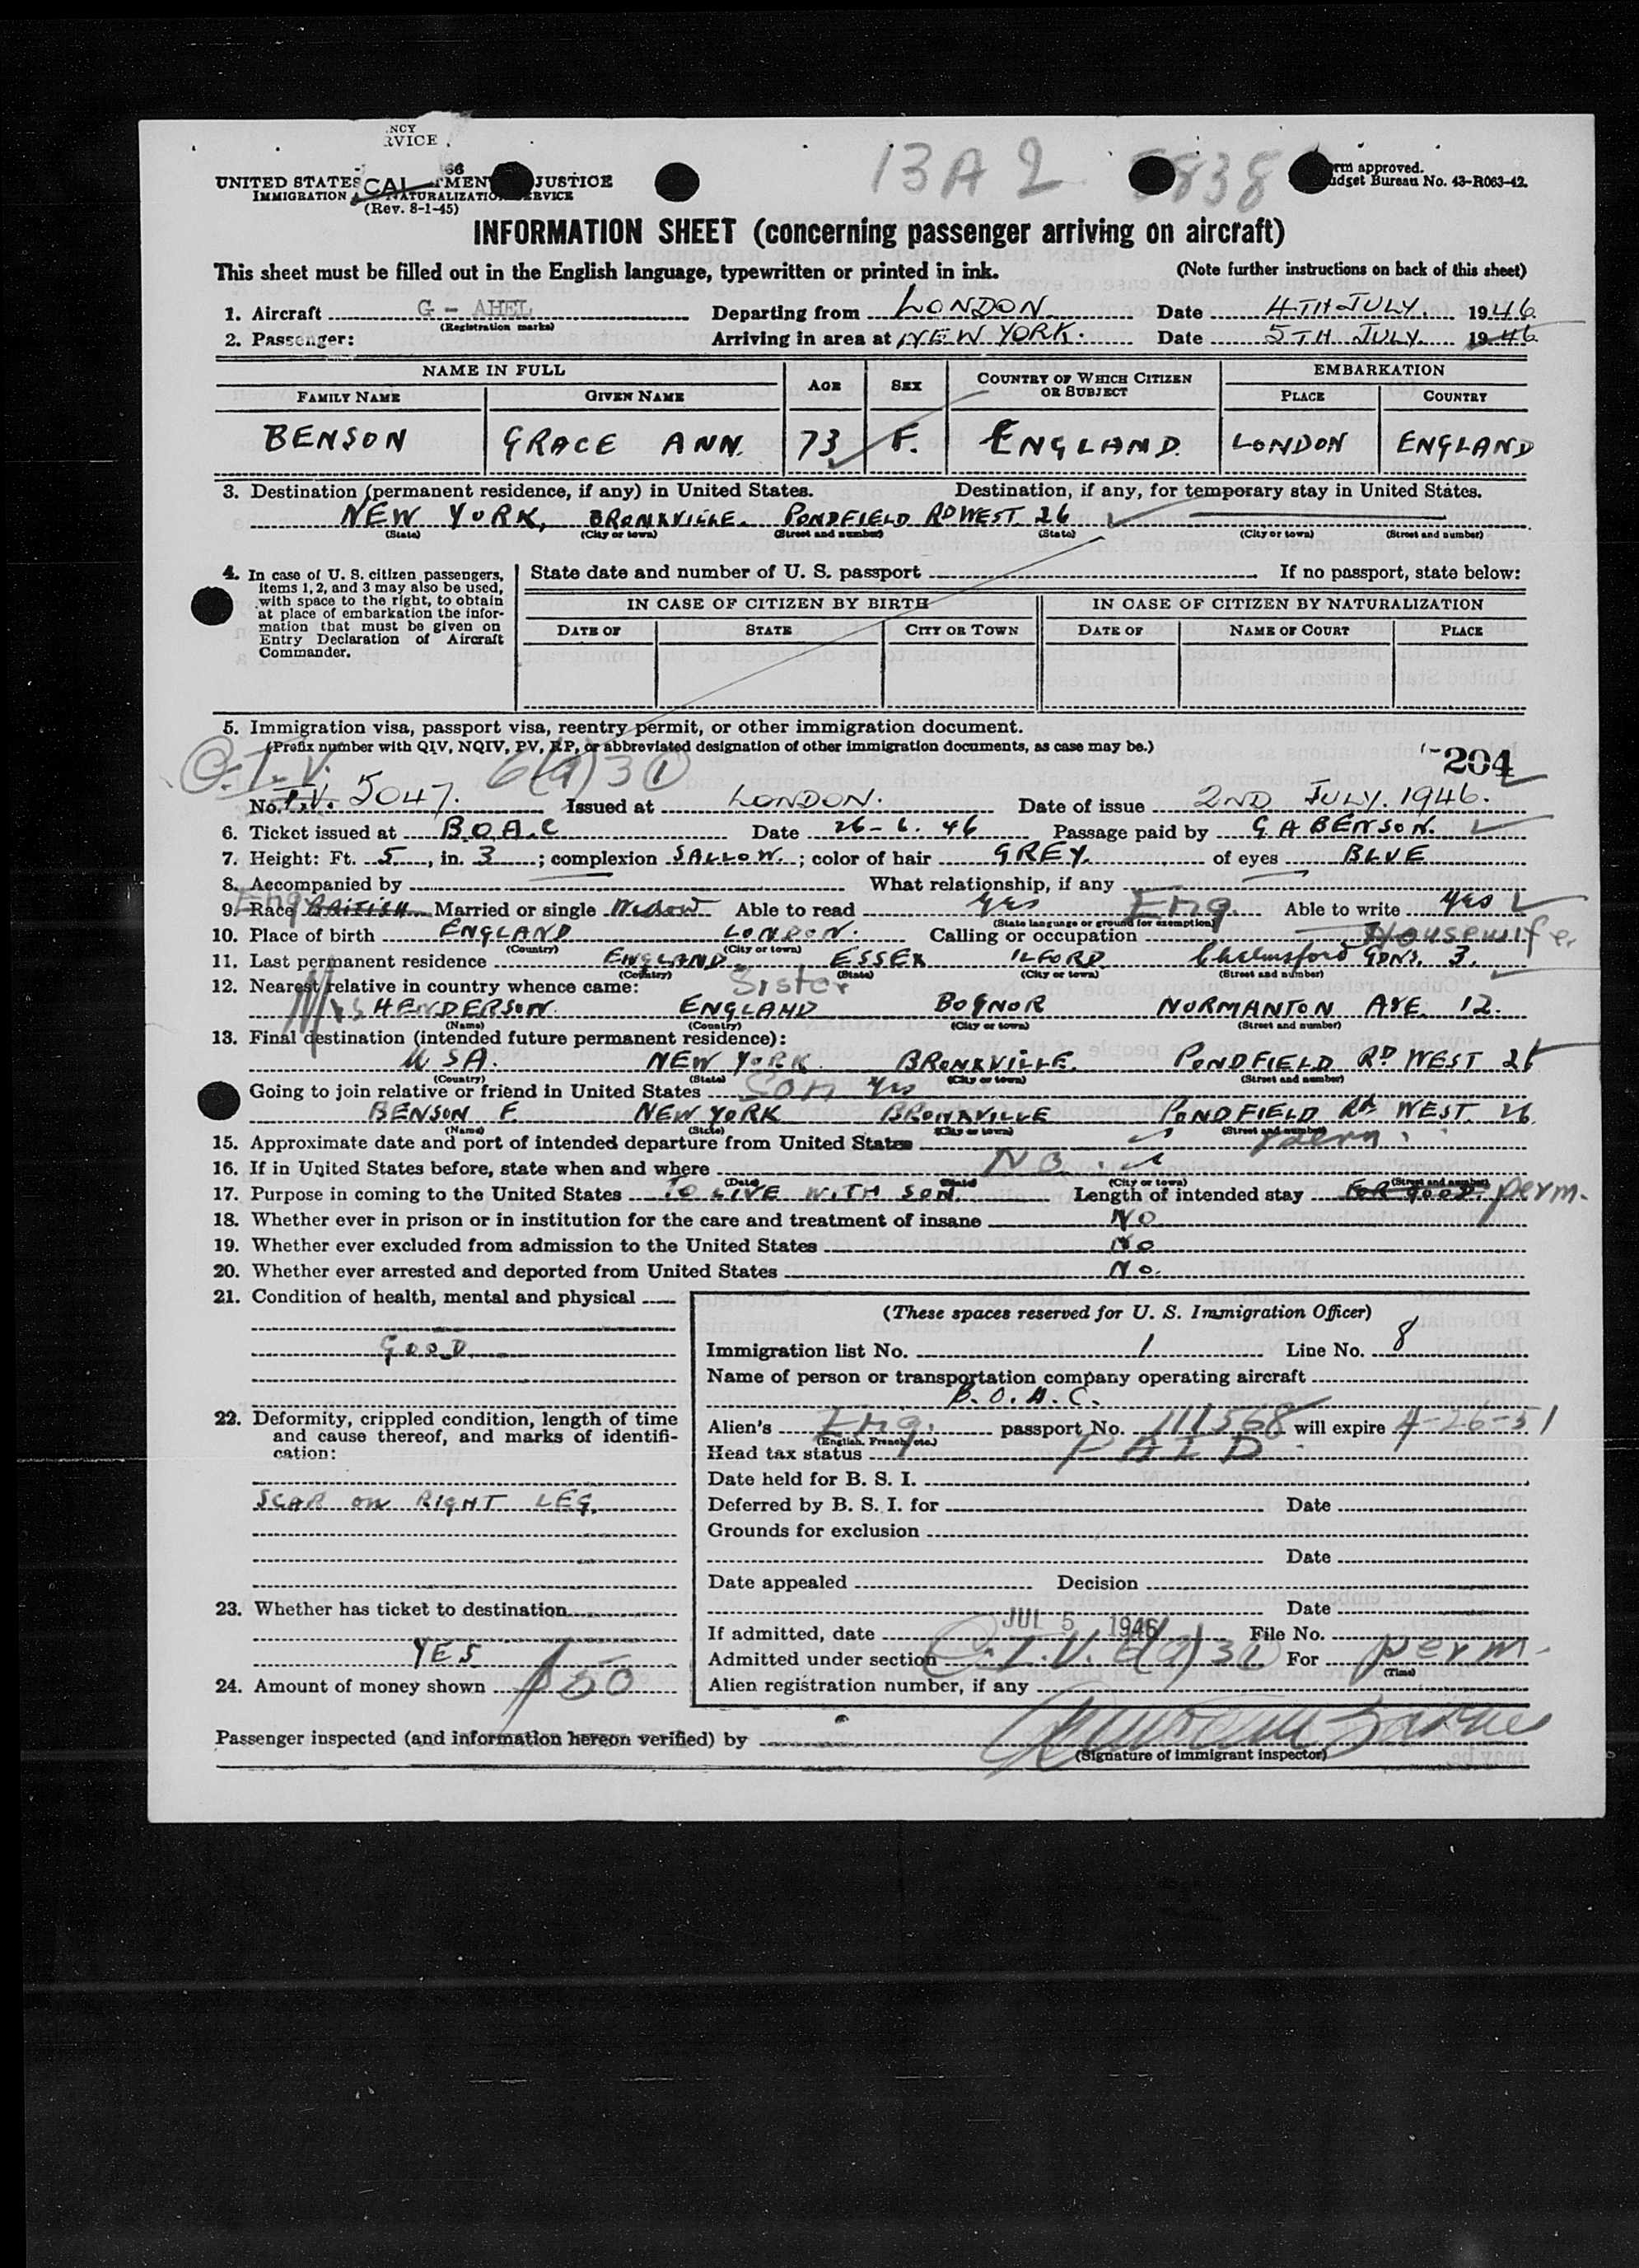 NCY
RVICE
66
13 A 2
5838
UNITED STATES CAL TMEN JUSTICE
IMMIGRATION NATURALIZATIO RVICE
(Rev. 8-1-45)
rm approved.
udget Bureau No. 43-R063-42.
INFORMATION SHEET (concerning passenger arriving on aircraft)
This sheet must be filled out in the English language, typewritten or printed in ink. (Note further instructions on back of this sheet)
1. Aircraft G - AHEL Departing from LONDON Date 4TH JULY. 1946.
(Registration marks)
2. Passenger: Arriving in area at NEW YORK. Date 5TH JULY. 1946
NAME IN FULL AGE SEX COUNTRY OF WHICH CITIZEN OR SUBJECT EMBARKATION
FAMILY NAME GIVEN NAME PLACE COUNTRY
BENSON GRACE ANN. 73 F. ENGLAND. LONDON ENGLAND
3. Destination (permanent residence, if any) in United States. Destination, if any, for temporary stay in United States.
NEW YORK, BRONXVILLE. PONDFIELD RD WEST 26
(State) (City or town) (Street and number) (State) (City or town) (Street and number)
4. In case of U. S. citizen passengers, items 1, 2, and 3 may also be used, with space to the right, to obtain at place of embarkation the information that must be given on Entry Declaration of Aircraft Commander.
State date and number of U. S. passport If no passport, state below:
IN CASE OF CITIZEN BY BIRTH IN CASE OF CITIZEN BY NATURALIZATION
DATE OF STATE CITY OR TOWN DATE OF NAME OF COURT PLACE
5. Immigration visa, passport visa, reentry permit, or other immigration document.
(Prefix number with QIV, NQIV, PV, RP, or abbreviated designation of other immigration documents, as case may be.)
204
Q.I.V. 6(a)3(1)
No. I.V. 5047. Issued at LONDON. Date of issue 2ND JULY. 1946.
6. Ticket issued at B.O.A.C Date 26-6.46 Passage paid by G A BENSON.
7. Height: Ft. 5, in. 3; complexion SALLOW.; color of hair GREY. of eyes BLUE
8. Accompanied by What relationship, if any
Eng
9. Race BRITISH Married or single Widow Able to read Yes Eng. Able to write Yes
(State language or ground for exemption)
10. Place of birth ENGLAND LONDON. Calling or occupation Housewife
(Country) (City or town)
11. Last permanent residence ENGLAND. ESSEX ILFORD. Chelmsford GDNS. 3.
(Country) (State) (City or town) (Street and number)
12. Nearest relative in country whence came: Sister
Mrs HENDERSON. ENGLAND BOGNOR NORMANTON AVE. 12.
(Name) (Country) (City or town) (Street and number)
13. Final destination (intended future permanent residence):
U SA. NEW YORK BRONXVILLE. PONDFIELD RD WEST 26
(Country) (State) (City or town) (Street and number)
Going to join relative or friend in United States Son Yes
BENSON F. NEW YORK BRONXVILLE PONDFIELD Rd WEST. 26
(Name) (State) (City or town) (Street and number)
15. Approximate date and port of intended departure from United States perm.
16. If in United States before, state when and where NO.
(Date) (State) (City or town) (Street and number)
17. Purpose in coming to the United States TO LIVE WITH SON Length of intended stay FOR GOOD. perm.
18. Whether ever in prison or in institution for the care and treatment of insane NO
19. Whether ever excluded from admission to the United States No
20. Whether ever arrested and deported from United States No.
21. Condition of health, mental and physical
GOOD
22. Deformity, crippled condition, length of time and cause thereof, and marks of identification:
SCAR on RIGHT LEG.
23. Whether has ticket to destination
YES
24. Amount of money shown $50
(These spaces reserved for U. S. Immigration Officer)
Immigration list No. 1 Line No. 8
Name of person or transportation company operating aircraft
B.O.A.C.
Alien's Eng. passport No. 111568 will expire 4-26-51
(English, French, etc.)
Head tax status PAID
Date held for B. S. I.
Deferred by B. S. I. for Date
Grounds for exclusion
Date
Date appealed Decision
Date
If admitted, date JUL 5 1946 File No.
Admitted under section Q.I.V. 6(a)3(1) For perm.
(Time)
Alien registration number, if any
Passenger inspected (and information hereon verified) by
(Signature of immigrant inspector)